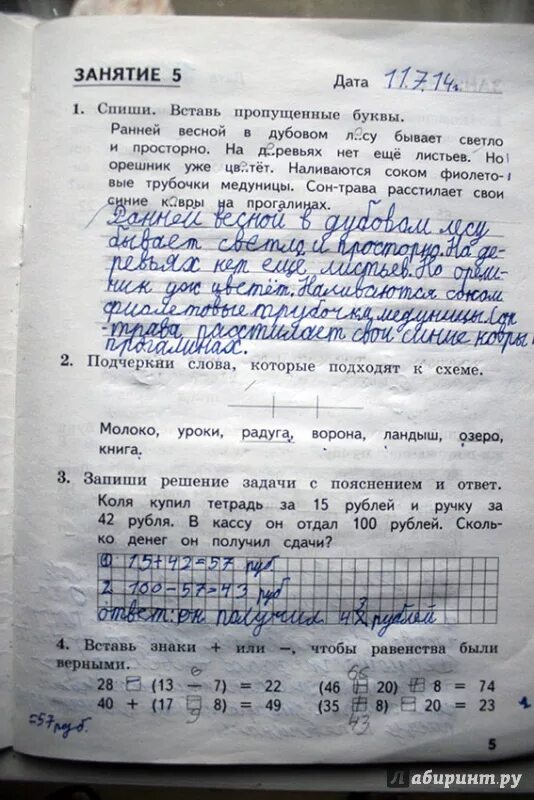 ЗАНЯТИЕ 5
Дата 11.7.14г.
1. Спиши. Вставь пропущенные буквы.
Ранней весной в дубовом лесу бывает светло
и просторно. На деревьях нет ещё листьев. Но
орешник уже цветёт. Наливаются соком фиолето-
вые трубочки медуницы. Сон-трава расстилает свои
синие ковры на прогалинах.
Ранней весной в дубовом лесу
бывает светло и просторно. На де-
ревьях нет ещё листьев. Но ореш-
ник уж цветёт. Наливаются соком
фиолетовые трубочки медуницы. Сон
-трава расстилает свои синие ковры
прогалинах.
2. Подчеркни слова, которые подходят к схеме.
Молоко, уроки, радуга, ворона, ландыш, озеро,
книга.
3. Запиши решение задачи с пояснением и ответ.
Коля купил тетрадь за 15 рублей и ручку за
42 рубля. В кассу он отдал 100 рублей. Сколь-
ко денег он получил сдачи?
1) 15+42=57 руб
2 100-57=43 руб
ответ: он получил 43 рублей
4. Вставь знаки + или –, чтобы равенства были
верными.
6 66
28 – (13 – 7) = 22 (46 + 20) + 8 = 74
40 + (17 – 8) = 49 (35 + 8) – 20 = 23
9 43
=57руб.
5
Лабиринт.ру